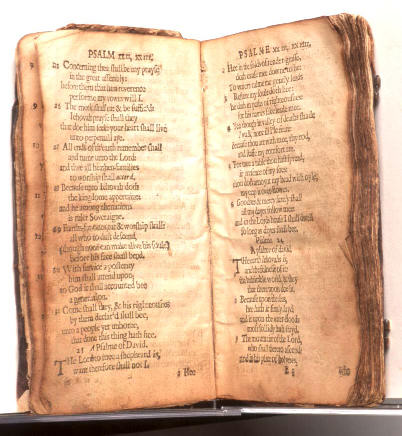 PSALM XXII, XXIII.
25 Concerning thee shall be my prayse
in the great assembly:
before them that him reverence
performe my vowes will I.
26 The meek shall eat & be suffic'd:
Iehovah prayse shall they
that doe him seek: your heart shall live
unto perpetuall aye.
27 All ends of th'earth remember shall
and turne unto the Lord:
and thee all heathen-families
to worship shall accord,
28 Because unto Iehovah doth
the kingdome appertaine:
and he among the nations
is ruler Soveraigne.
29 Earths-fat-ones, eat & worship shall:
all who to dust descend,
(though none can make alive his soule)
before his face shall bend.
30 With service a posterity
him shall attend upon;
to God it shall accounted bee
a generation.
31 Come shall they, & his righteousnes
by them declar'd shall bee,
unto a people yet unborne,
that done this thing hath hee.
23 A Psalme of David.
THe Lord to mee a shepheard is,
want therefore shall not I.
2 Hee
PSALME XXIII, XXIIII.
2 Hee in the folds of tender-grasse,
doth cause mee downe to lie:
To waters calme me gently leads
3 Restore my soule doth hee:
he doth in paths of righteousnes:
for his names sake leade mee.
4 Yea though in valley of deaths shade
I walk, none ill I'le feare:
because thou art with mee, thy rod,
and staffe my comfort are.
5 For mee a table thou hast spread,
in presence of my foes:
thou dost annoynt my head with oyle,
my cup it over-flowes.
6 Goodnes & mercy surely shall
all my dayes follow mee:
and in the Lords house I shall dwell
so long as dayes shall bee.
Psalme 24
A psalme of david.
THe earth Iehovahs is,
and the fulnesse of it:
the habitable world, & they
that there upon doe sit.
2 Because upon the seas,
hee hath it firmly layd:
and it upon the water-floods
most sollidly hath stayd.
3 The mountaine of the Lord,
who shall thereto ascend?
and in his place of holynes,
E 3
who